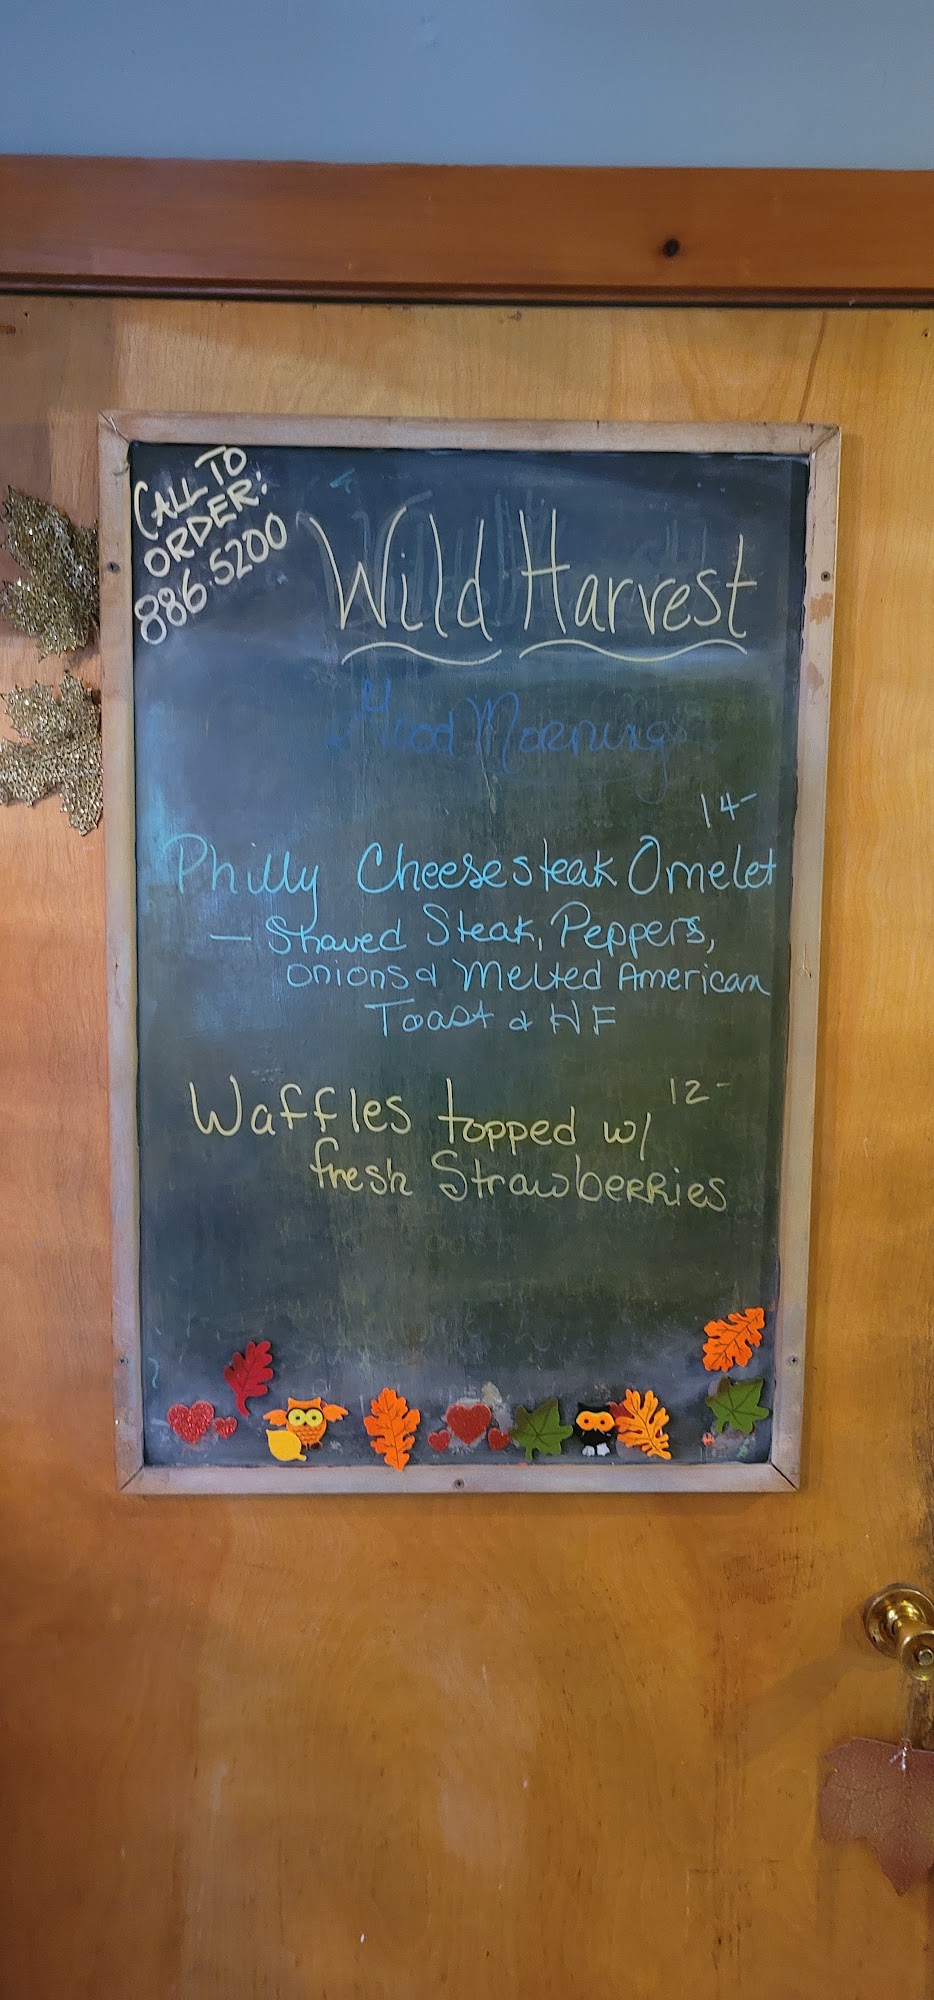 CALL TO
ORDER!
886.5200
Wild Harvest
Good Morning
14-
Philly Cheesesteak Omelet
- Shaved Steak, Peppers,
onions & Melted American
Toast & HF
12-
Waffles topped w/
fresh Strawberries